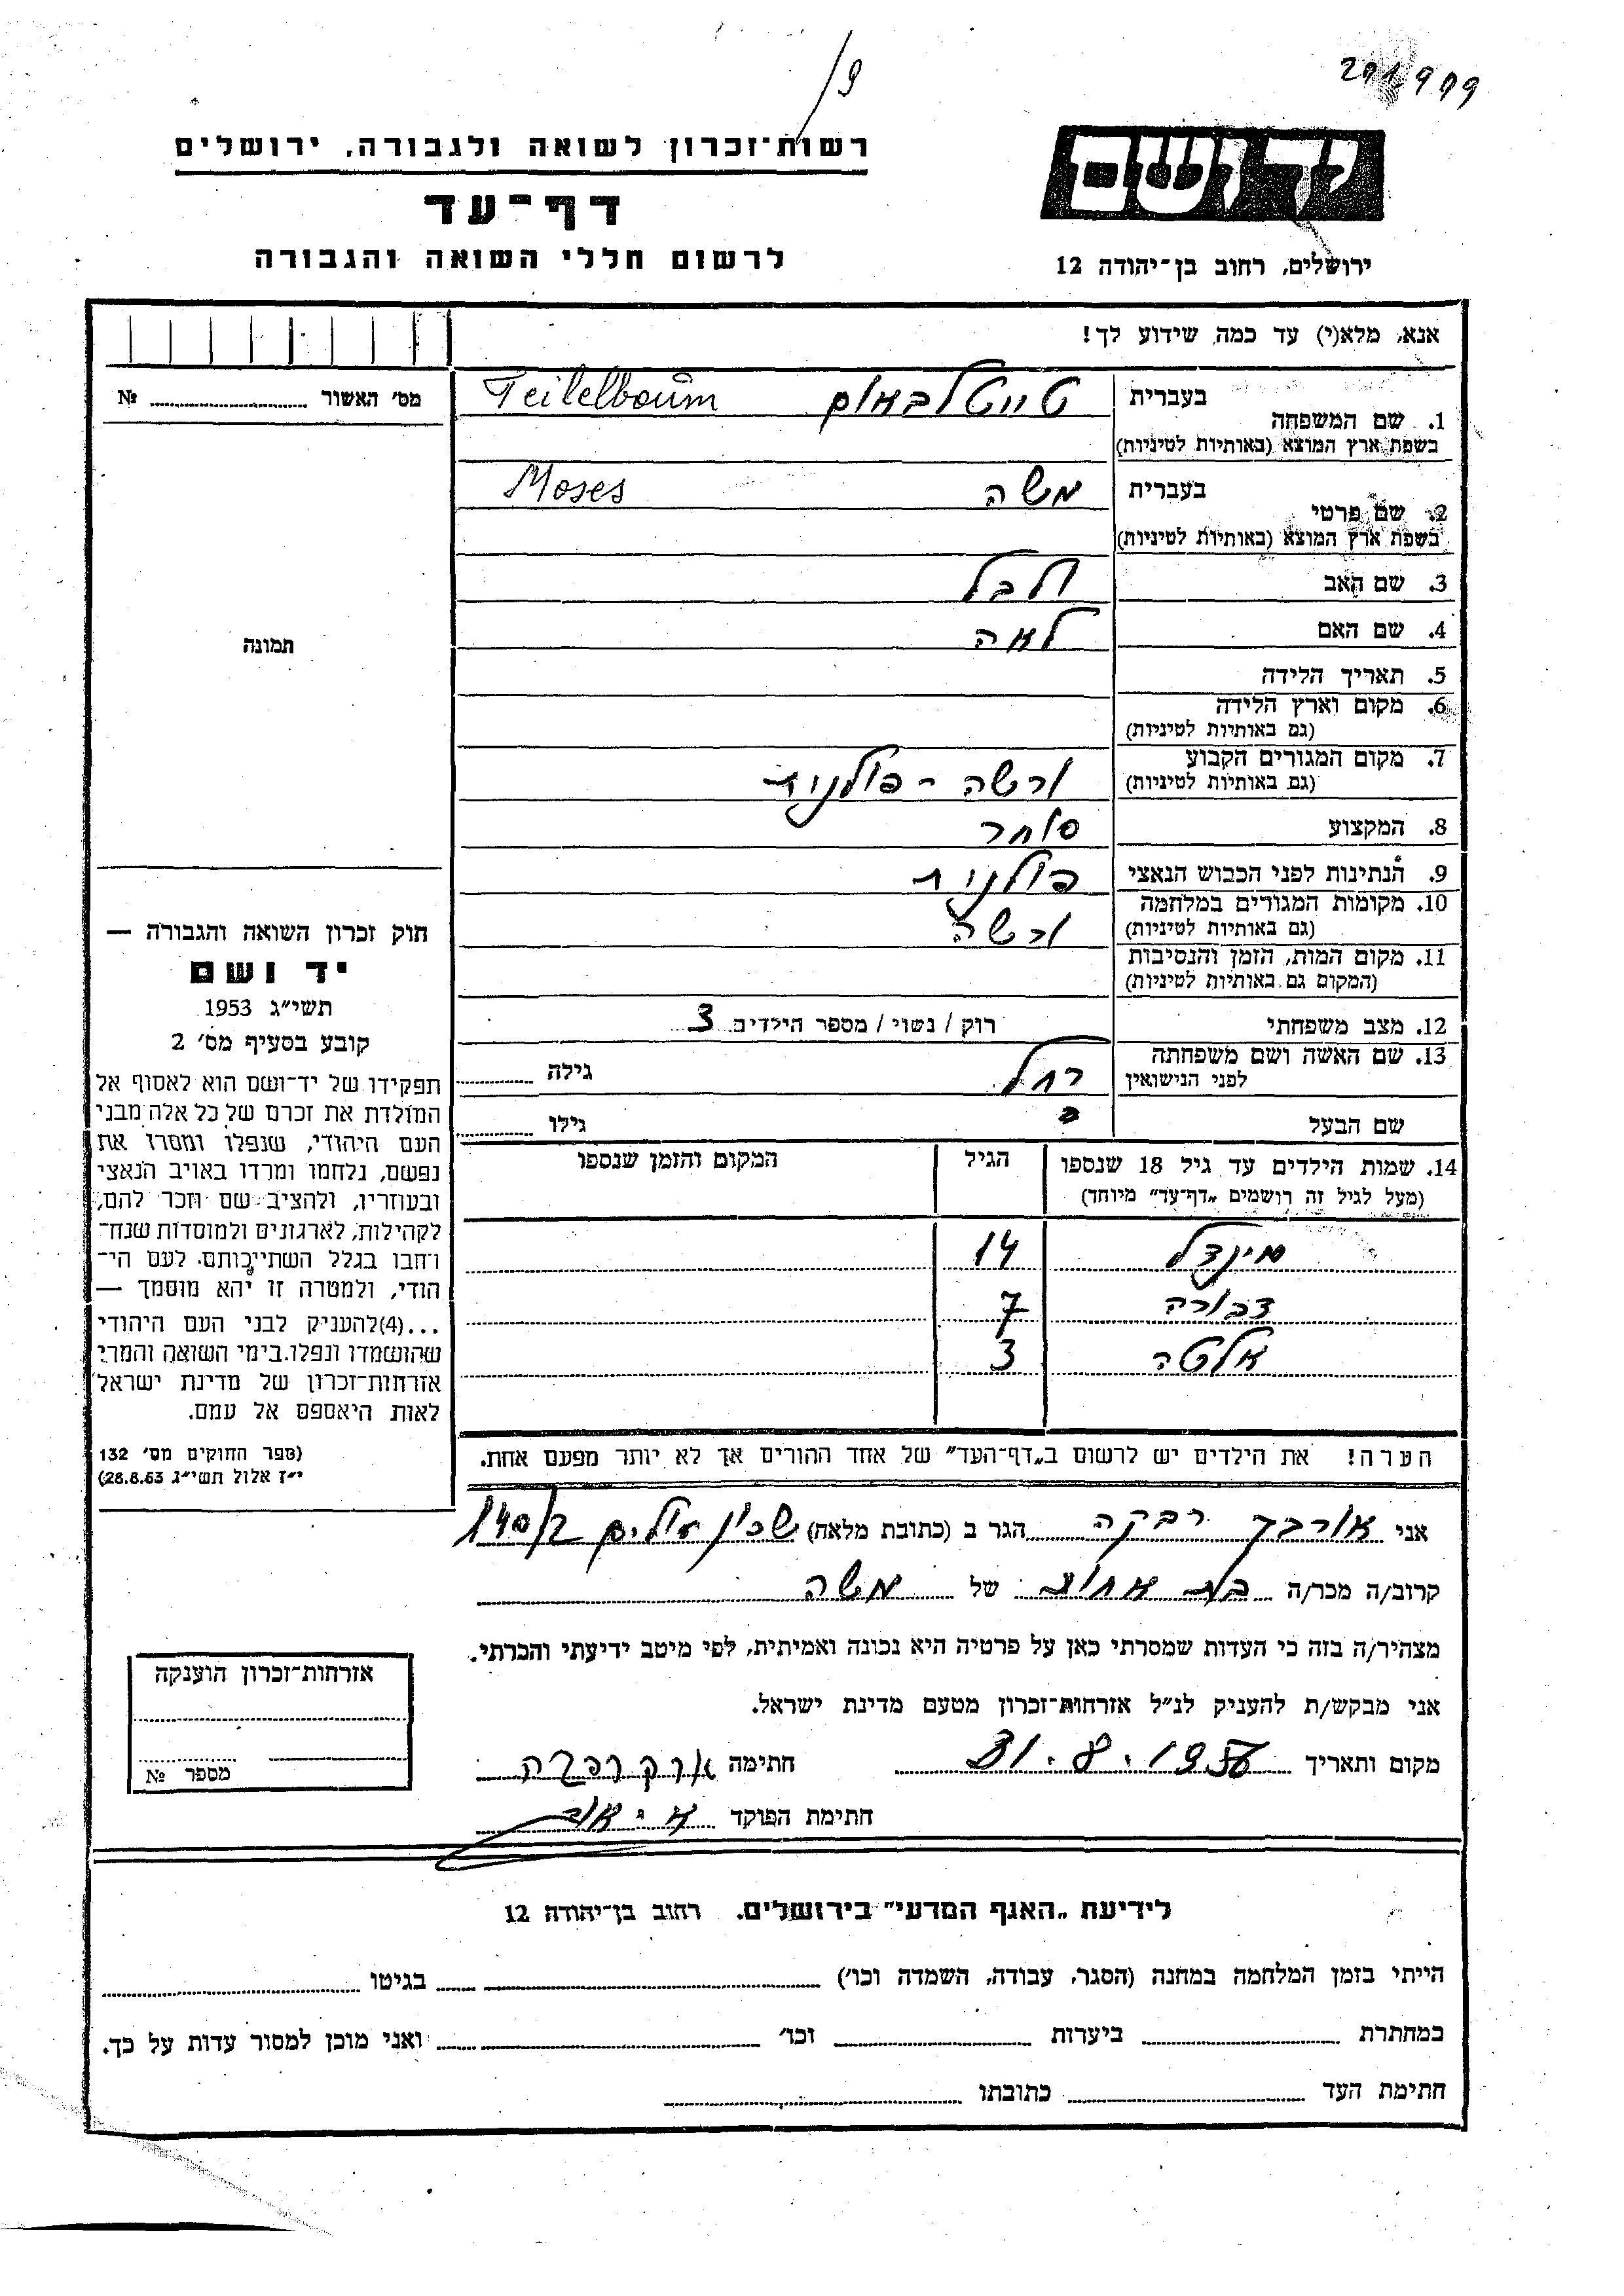 291909
/9
יד ושם
ירושלים, רחוב בן־יהודה 12
רשות־זכרון לשואה ולגבורה, ירושלים
דף־עד
לרשום חללי השואה והגבורה
אנא, מלא(י) עד כמה שידוע לך!
מס׳ האשור № 
1. שם המשפחה
בעברית טייטלבאום Teitelbaum
בשפת ארץ המוצא (באותיות לטיניות)
2. שם פרטי
בעברית משה Moses
בשפת ארץ המוצא (באותיות לטיניות)
3. שם האב
4. שם האם לאה
5. תאריך הלידה
6. מקום וארץ הלידה
(גם באותיות לטיניות)
7. מקום המגורים הקבוע ורשה - פולניה
(גם באותיות לטיניות)
8. המקצוע סוחר
9. הנתינות לפני הכבוש הנאצי פולנית
10. מקומות המגורים במלחמה ורשה
(גם באותיות לטיניות)
11. מקום המות, הזמן והנסיבות
(המקום גם באותיות לטיניות)
12. מצב משפחתי רוק / נשוי / מספר הילדים 3
13. שם האשה ושם משפחתה רחל גילה
לפני הנישואין
שם הבעל גילו
14. שמות הילדים עד גיל 18 שנספו הגיל המקום והזמן שנספו
(מעל לגיל זה רושמים „דף־עד” מיוחד)
מינדל 14
דבורה 7
אלטה 3
הערה! את הילדים יש לרשום ב„דף־העד” של אחד ההורים אך לא יותר מפעם אחת.
תמונה
חוק זכרון השואה והגבורה —
יד ושם
תשי״ג 1953
קובע בסעיף מס׳ 2
תפקידו של יד־ושם הוא לאסוף אל
המולדת את זכרם של כל אלה מבני
העם היהודי, שנפלו ומסרו את
נפשם, נלחמו ומרדו באויב הנאצי
ובעוזריו, ולהציב שם וזכר להם,
לקהילות, לארגונים ולמוסדות שנח־
רחבו בגלל השתייכותם לעם הי־
הודי, ולמטרה זו יהא מוסמך —
...(4)להעניק לבני העם היהודי
שהושמדו ונפלו בימי השואה והמרי
אזרחות־זכרון של מדינת ישראל
לאות היאספם אל עמם.
(ספר החוקים מס׳ 132
י״ז אלול תשי״ג 28.8.53)
אני אורבך רבקה הגר ב (כתובת מלאה) שכון עולים 140/2
קרוב/ה מכר/ה בת אחות של משה
מצהיר/ה בזה כי העדות שמסרתי כאן על פרטיה היא נכונה ואמיתית, לפי מיטב ידיעתי והכרתי.
אני מבקש/ת להעניק לנ״ל אזרחות־זכרון מטעם מדינת ישראל.
מקום ותאריך 31.8.1956 חתימה
חתימת הפוקד
אזרחות־זכרון הוענקה
מספר №
לידיעת „האגף המדעי” בירושלים. רחוב בן־יהודה 12
הייתי בזמן המלחמה במחנה (הסגר, עבודה, השמדה וכו׳) בגיטו
במחתרת ביערות וכו׳ ואני מוכן למסור עדות על כך.
חתימת העד כתובתו